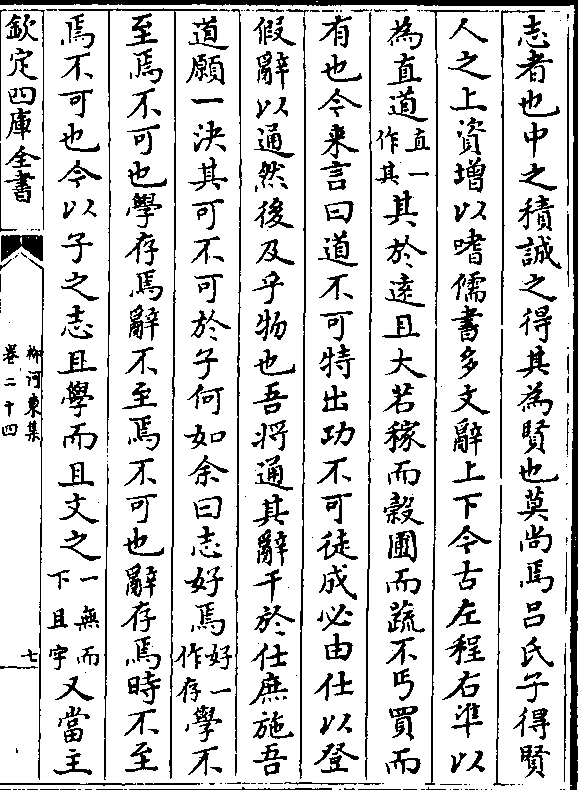 志者也中之積誠之得其為賢也莫尚焉吕氏子得賢
人之上資增以嗜儒書多文辭上下今古左程右準以
為直道直一作其其於逺且大若稼而穀圃而蔬不丐買而
有也今来言曰道不可特出功不可徒成必由仕以登
假辭以通然後及乎物也吾将通其辭干於仕庶施吾
道願一決其可不可於子何如余曰志好焉好一作存學不
至焉不可也學存焉辭不至焉不可也辭存焉時不至
焉不可也今以子之志且學而且文之一無而下且字又當主
欽定四庫全書
柳河東集
卷二十四
七